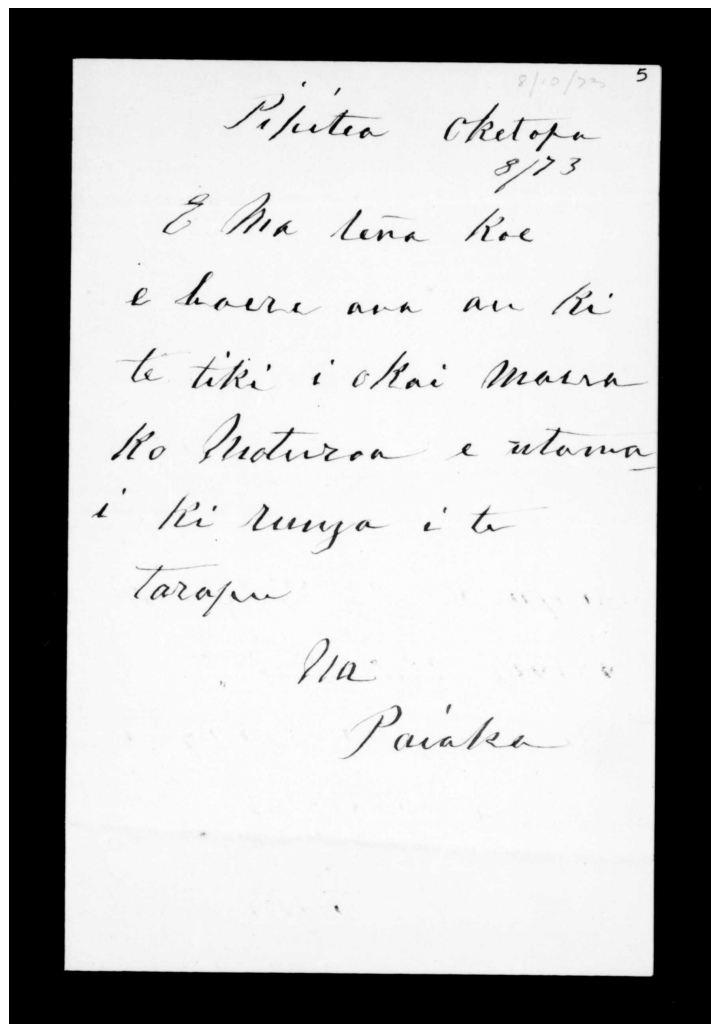 5
8/10/73
Pipitea Oketopa
8/73
E Ma tena Koe
e haere ana au Ki
te tiki i o Kai maera
Ko Moturoa e utama-
i Ki runga i te
tarapu
Na
Paiaka